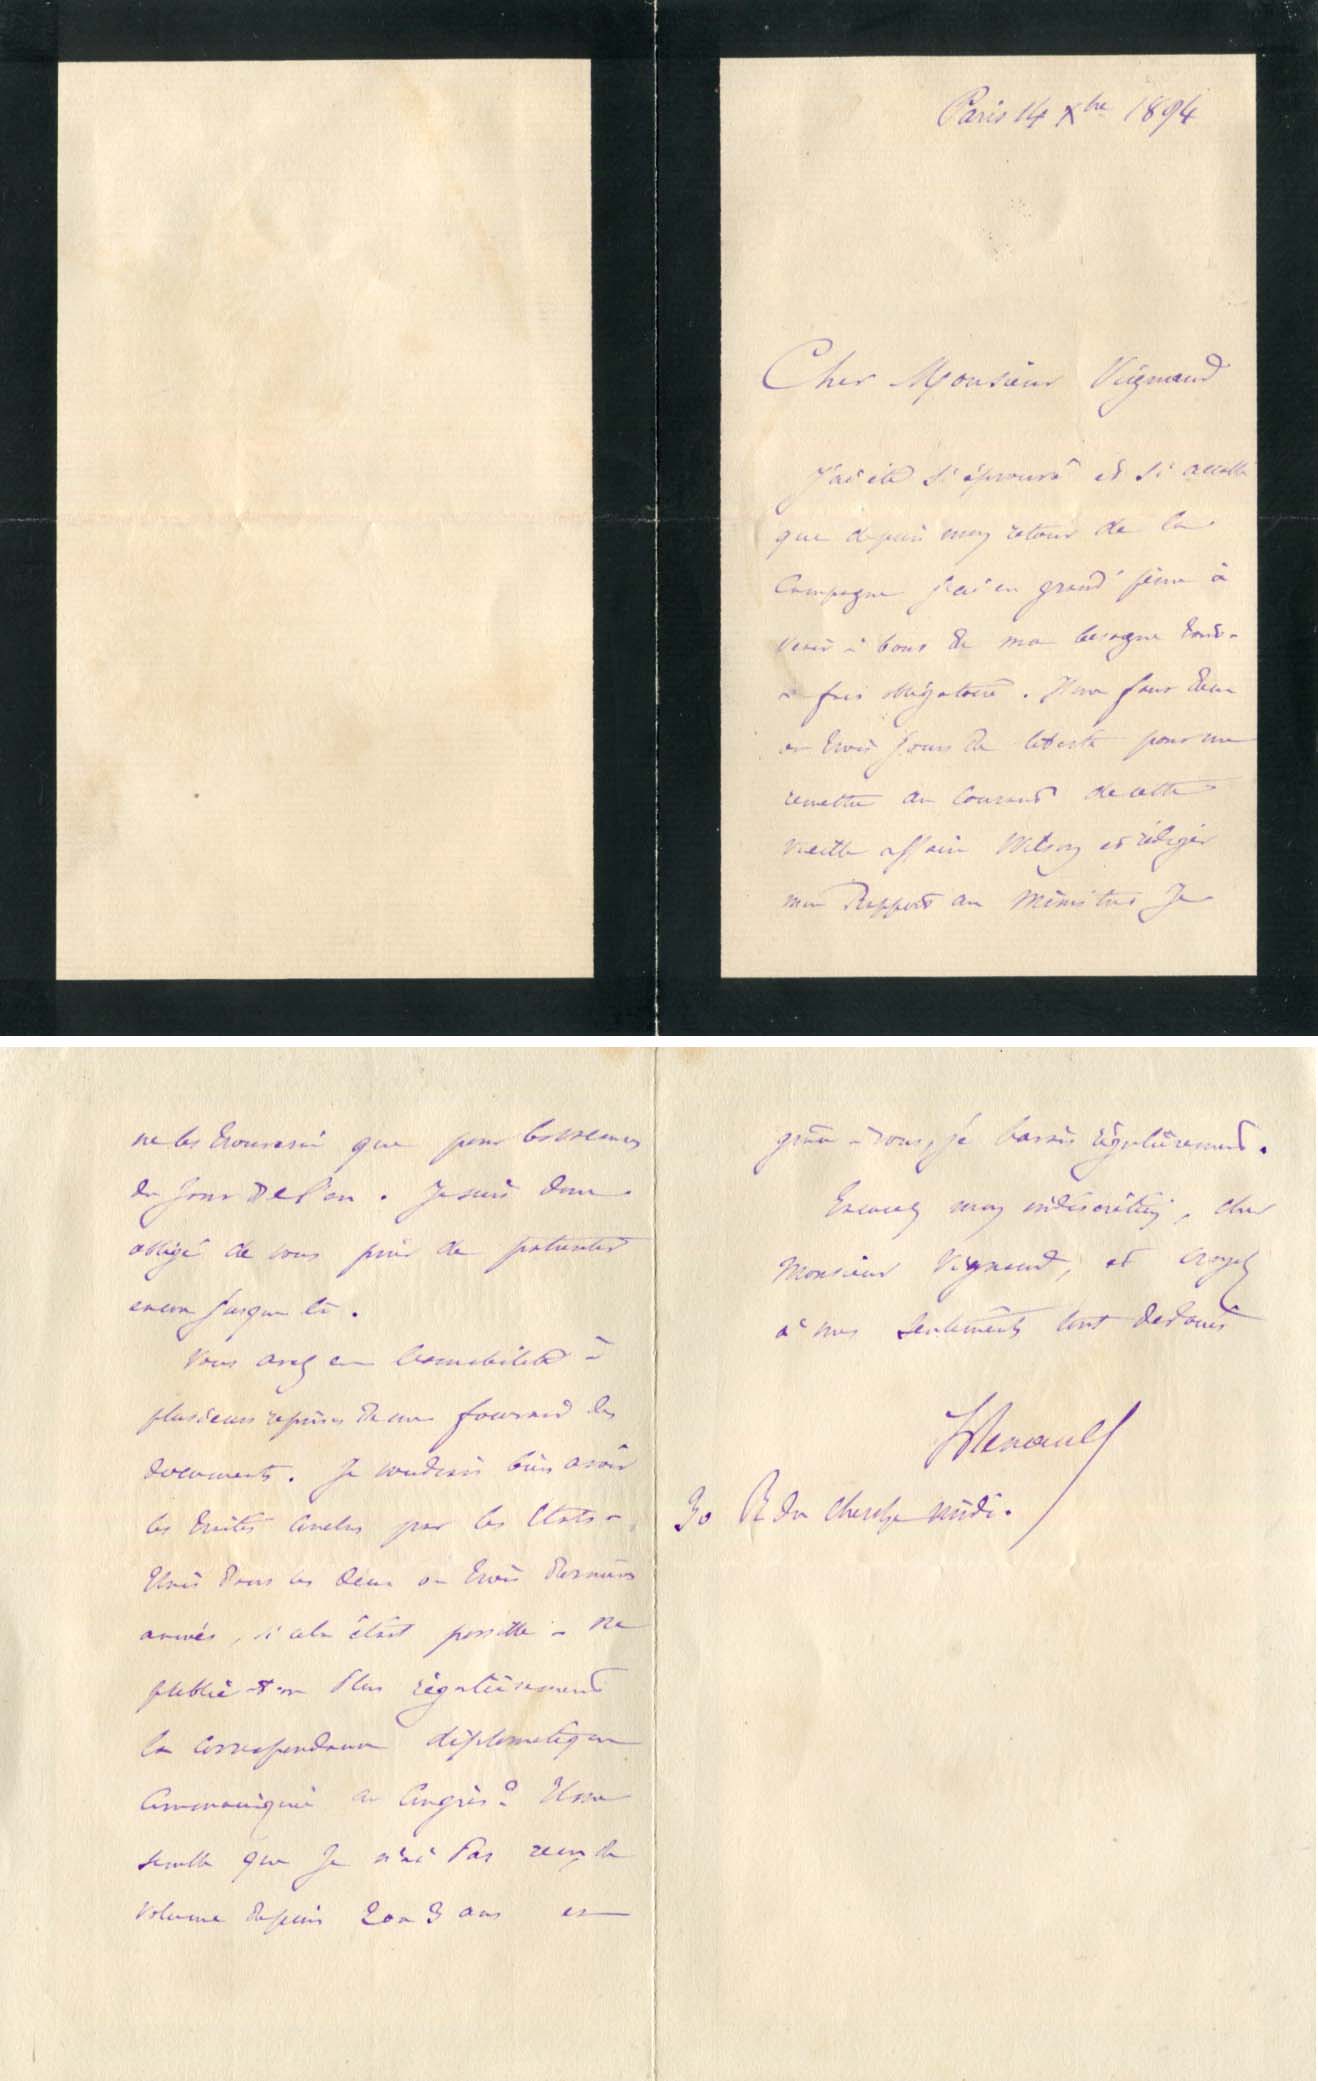 Paris 14 Xbre 1894
Cher Monsieur Vignaud
J'ai été si éprouvé et si accablé
que depuis mon retour de la
Campagne j'ai eu grand' peine à
venir à bout de ma besogne tout-
à-fait obligatoire. Il me faut deux
ou trois jours de liberté pour me
remettre au courant de cette
vieille affaire Wilson et rédiger
mon Rapport au Ministre Je
ne les trouverai que pour les vacances
du Jour de l'an. Je suis donc
obligé de vous prier de patienter
encore jusque là.
Vous avez eu l'amabilité à
plusieurs reprises de me fournir des
documents. Je voudrais bien avoir
les traités conclus par les États-
Unis dans les deux ou trois dernières
années, si cela était possible - Ne
publie-t-on plus régulièrement
la correspondance diplomatique
Communiquée au Congrès? Il me
semble que je n'ai pas reçu de
volume depuis 2 ou 3 ans et
grâce à vous, je l'avais régulièrement.
Excusez mon indiscrétion, cher
Monsieur Vignaud, et croyez
à mes sentiments tout dévoués
L Renault
30 R du Cherche midi.